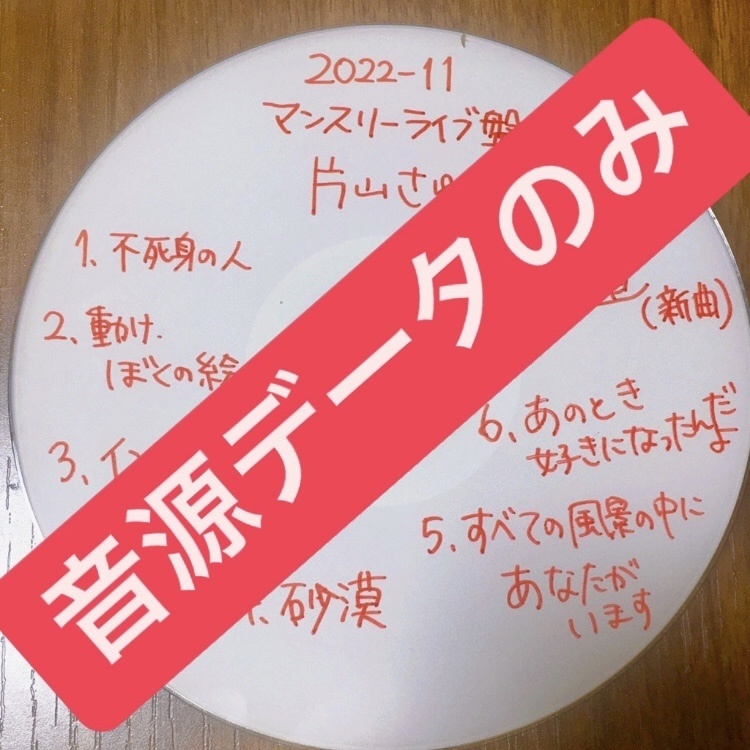 2022-11
マンスリーライブ盤
片山さゆ
1、不死身の人
2、動け
ぼくの絵
3、イ
4、砂漠
5、すべての風景の中に
あなたが
います
6、あのとき
好きになったんだよ
(新曲)
音源データのみ